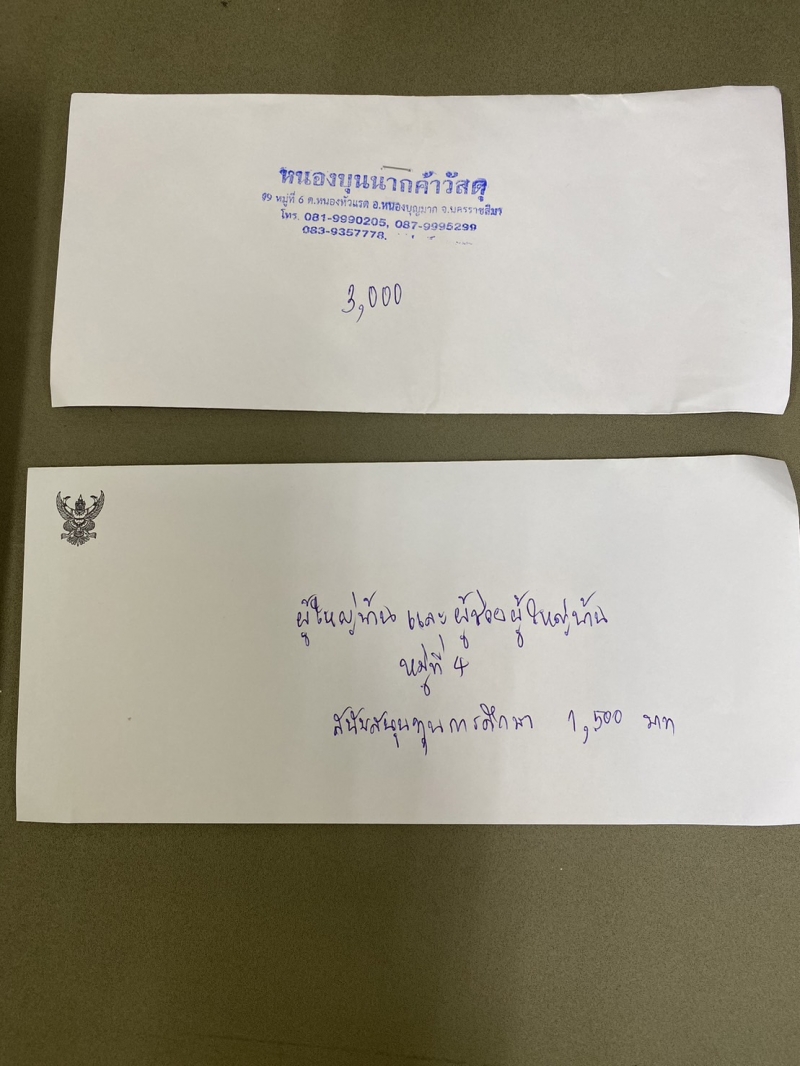 หนองบุนนากค้าวัสดุ
99 หมู่ที่ 6 ต.หนองหัวแรต อ.หนองบุญมาก จ.นครราชสีมา
โทร. 081-9990205, 087-9995299
083-9357778,
3,000
ผู้ใหญ่บ้าน และ ผู้ช่วยผู้ใหญ่บ้าน
หมู่ที่ 4
สนับสนุนทุนการศึกษา 1,500 บาท